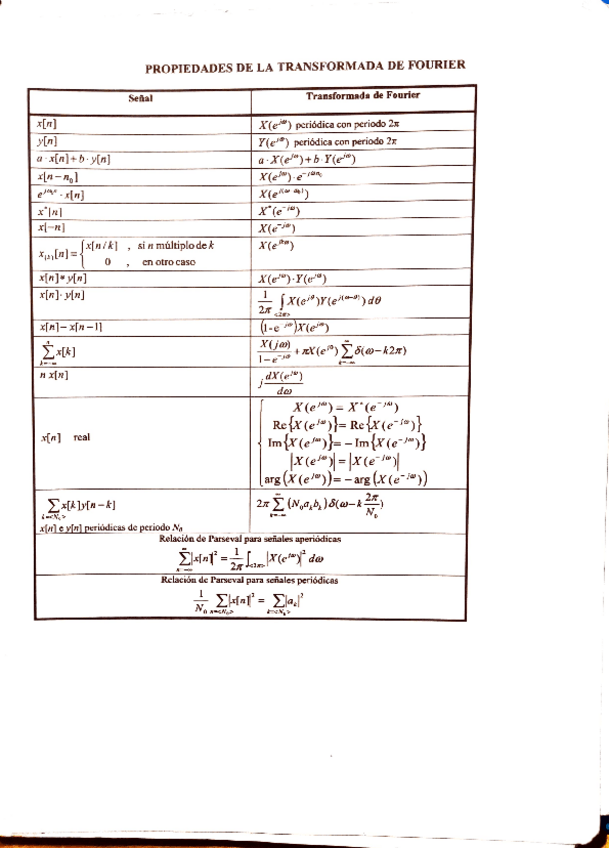 PROPIEDADES DE LA TRANSFORMADA DE FOURIER
Señal Transformada de Fourier
x[n] X(e^{jω}) periódica con periodo 2π
y[n] Y(e^{jω}) periódica con periodo 2π
a · x[n] + b · y[n] a · X(e^{jω}) + b · Y(e^{jω})
x[n − n₀] X(e^{jω}) · e^{−jωn₀}
e^{jω₀n} · x[n] X(e^{j(ω−ω₀)})
x*[n] X*(e^{−jω})
x[−n] X(e^{−jω})
x_{(k)}[n] = { x[n/k] , si n múltiplo de k X(e^{jkω})
0 , en otro caso
x[n] * y[n] X(e^{jω}) · Y(e^{jω})
x[n] · y[n] 1/2π ∫_{<2π>} X(e^{jθ})Y(e^{j(ω−θ)}) dθ
x[n] − x[n−1] (1-e^{−jω})X(e^{jω})
∑_{k=−∞}^{n} x[k] X(jω)/(1−e^{−jω}) + πX(e^{j0}) ∑_{k=−∞}^{∞} δ(ω−k2π)
n x[n] j dX(e^{jω})/dω
x[n] real { X(e^{jω}) = X*(e^{−jω})
Re{X(e^{jω})} = Re{X(e^{−jω})}
Im{X(e^{jω})} = − Im{X(e^{−jω})}
|X(e^{jω})| = |X(e^{−jω})|
arg(X(e^{jω})) = − arg(X(e^{−jω}))
∑_{k=<N₀>} x[k]y[n−k] 2π ∑_{k=−∞}^{∞} (N₀a_k b_k) δ(ω−k 2π/N₀)
x[n] e y[n] periódicas de periodo N₀
Relación de Parseval para señales aperiódicas
∑_{n=−∞}^{∞} |x[n]|² = 1/2π ∫_{<2π>} |X(e^{jω})|² dω
Relación de Parseval para señales periódicas
1/N₀ ∑_{n=<N₀>} |x[n]|² = ∑_{k=<N₀>} |a_k|²